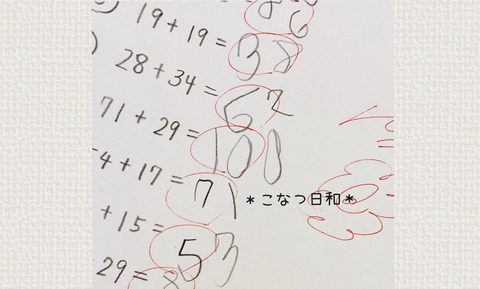 86
19+19=38
28+34=62
71+29=100
4+17=71
*こなつ日和*
+15=53
29=8